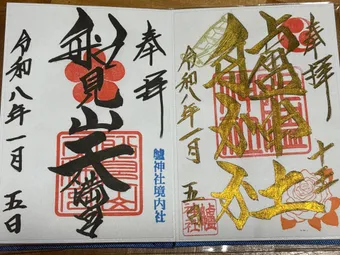 奉拝
船見山天満宮
令和八年一月五日
艫神社境内社
奉拝
艫神社
令和八年一月五日